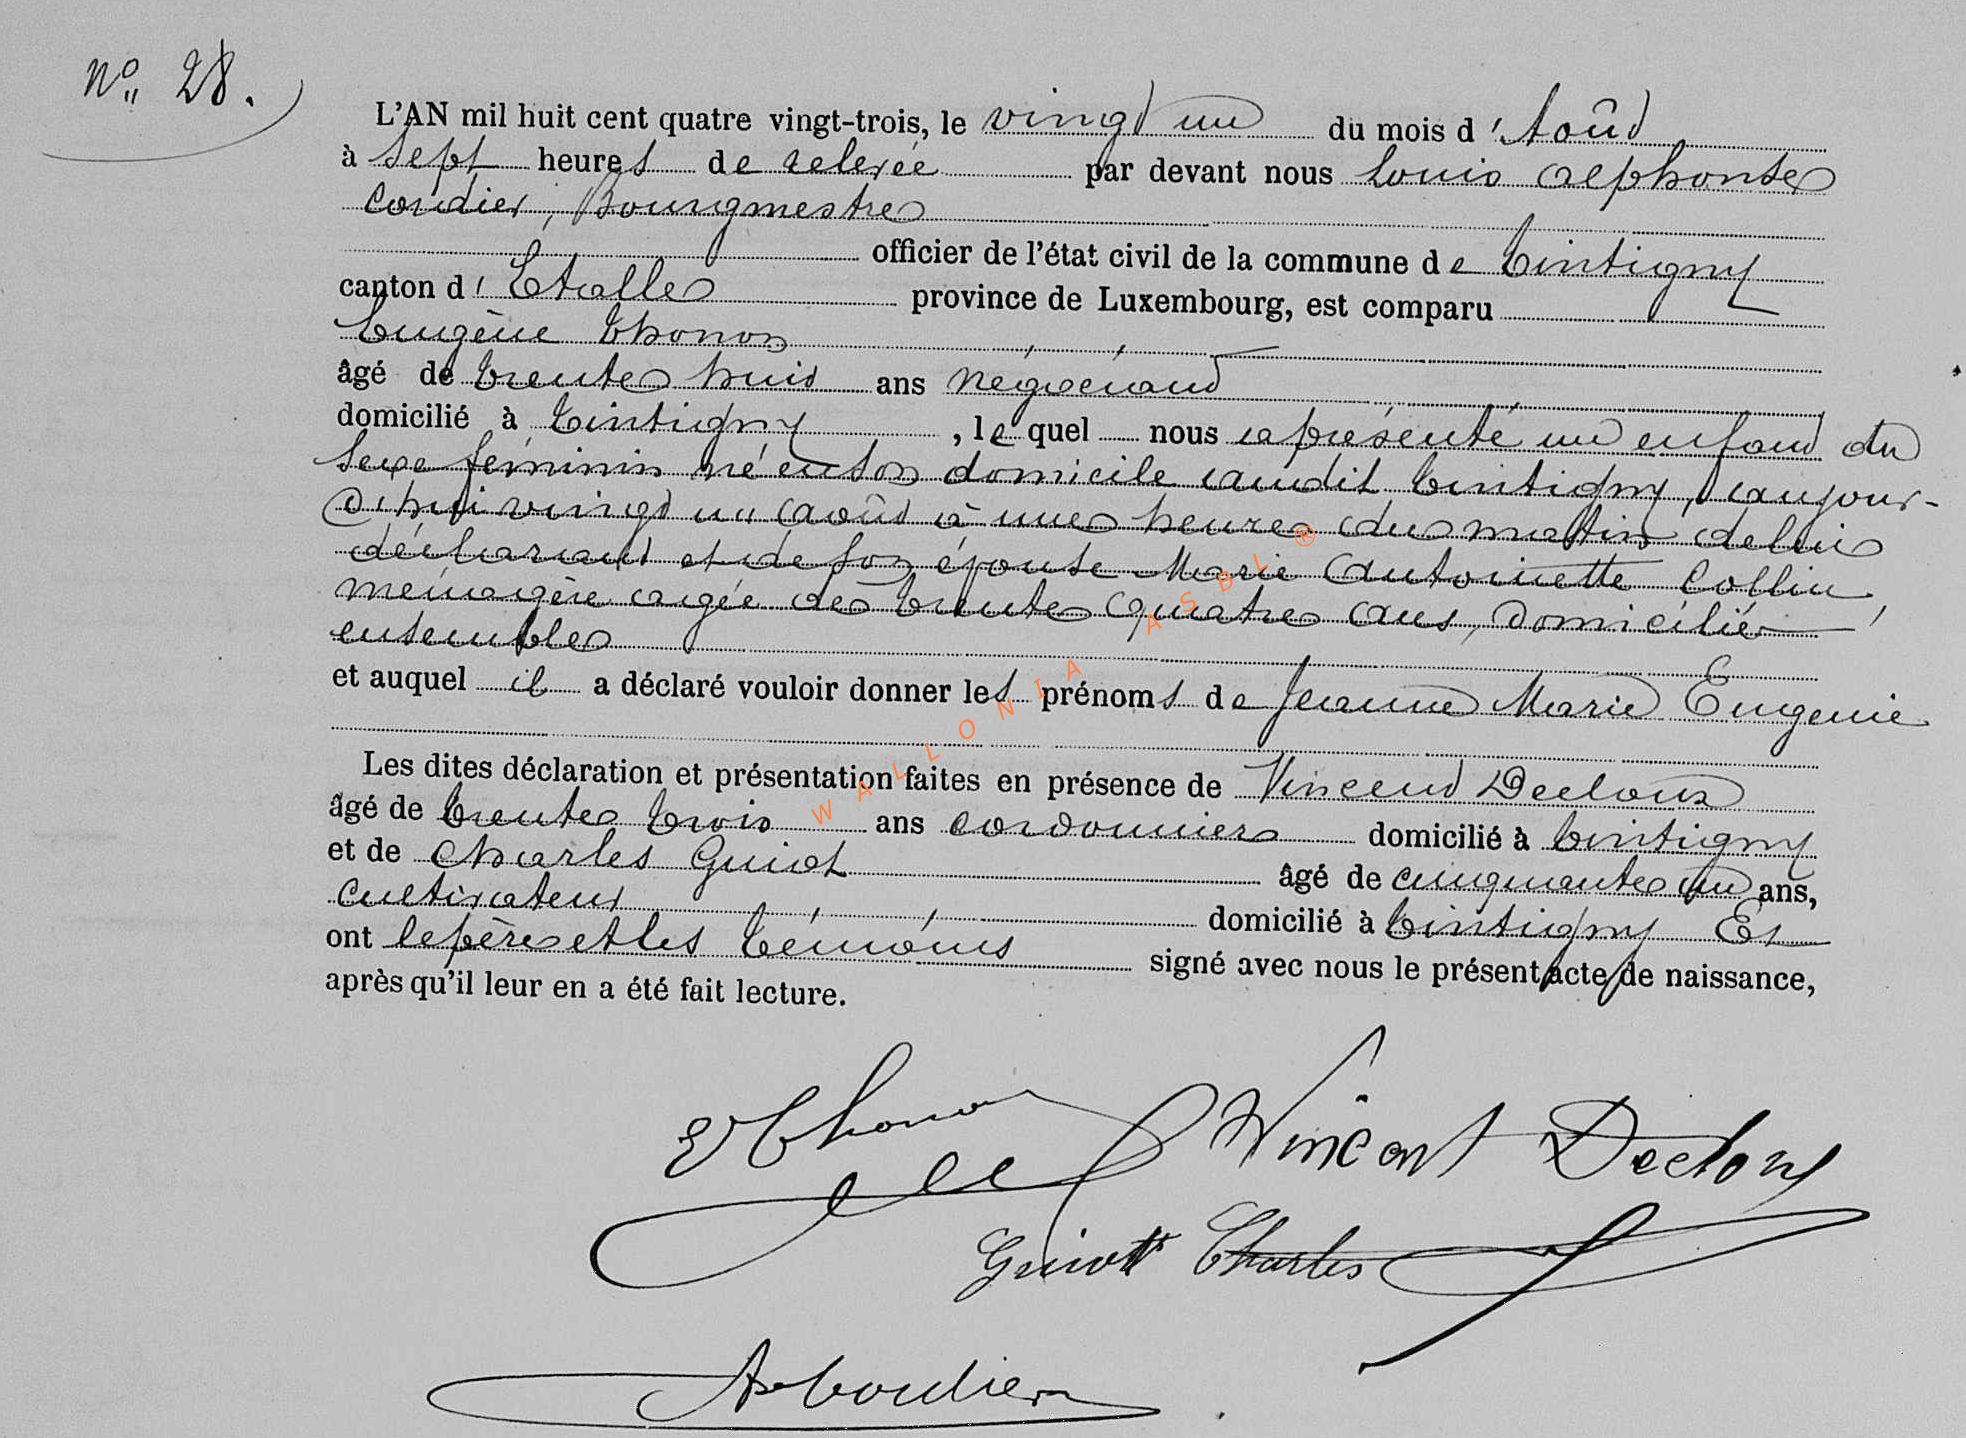 No 28.
L'AN mil huit cent quatre vingt-trois, le vingt un du mois d'Août
à sept heures de relevée par devant nous Louis Alphonse
Cordier, Bourgmestre
officier de l'état civil de la commune de Tintigny
canton d'Etalle province de Luxembourg, est comparu
Eugène Thonon
âgé de trente huit ans négociant
domicilié à Tintigny, le quel nous a présenté un enfant du
sexe féminin né en son domicile audit Tintigny, aujour-
d'hui vingt un août à une heure du matin de lui
déclarant et de son épouse Marie Antoinette Collin,
ménagère agée de trente quatre ans, domiciliés
ensemble
et auquel il a déclaré vouloir donner les prénoms de Jeanne Marie Eugenie
Les dites déclaration et présentation faites en présence de Vincent Decloux
âgé de trente trois ans cordonnier domicilié à Tintigny
et de Charles Guiot âgé de cinquante un ans,
cultivateur domicilié à Tintigny Et
ont le père et les témoins signé avec nous le présent acte de naissance,
après qu'il leur en a été fait lecture.
E Thonon Vincent Decloux
Guiot Charles
A Cordier
WALLONIA ASBL ®